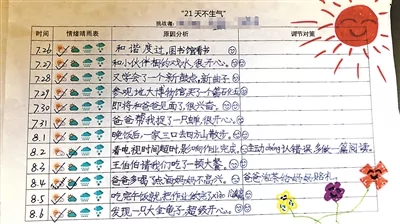 "21天不生气"
挑战者:
时间 情绪晴雨表 原因分析 调节对策
7.26 和谐度过,图书馆看书
7.27 和小伙伴们玩水,很开心。
7.28 又学会了一个新
7.29 参观地大博物馆买了个
7.30 即将和爸爸见面了,很兴奋。
7.31 爸爸帮我捉了一只蝉,很开心。
8.1 晚饭后,一家三口去爬山散步。
8.2 看电视时间超时,影响作业完成。 主动dǎng认错误,多做一篇阅读。
8.3 王伯伯请我们吃了一顿大餐。
8.4 爸爸多喝了点酒,妈妈不高兴。 爸爸泡茶给妈妈赔礼。
8.5 吃完午饭就把作业
8.6 发现一只大金龟子,超级开心。